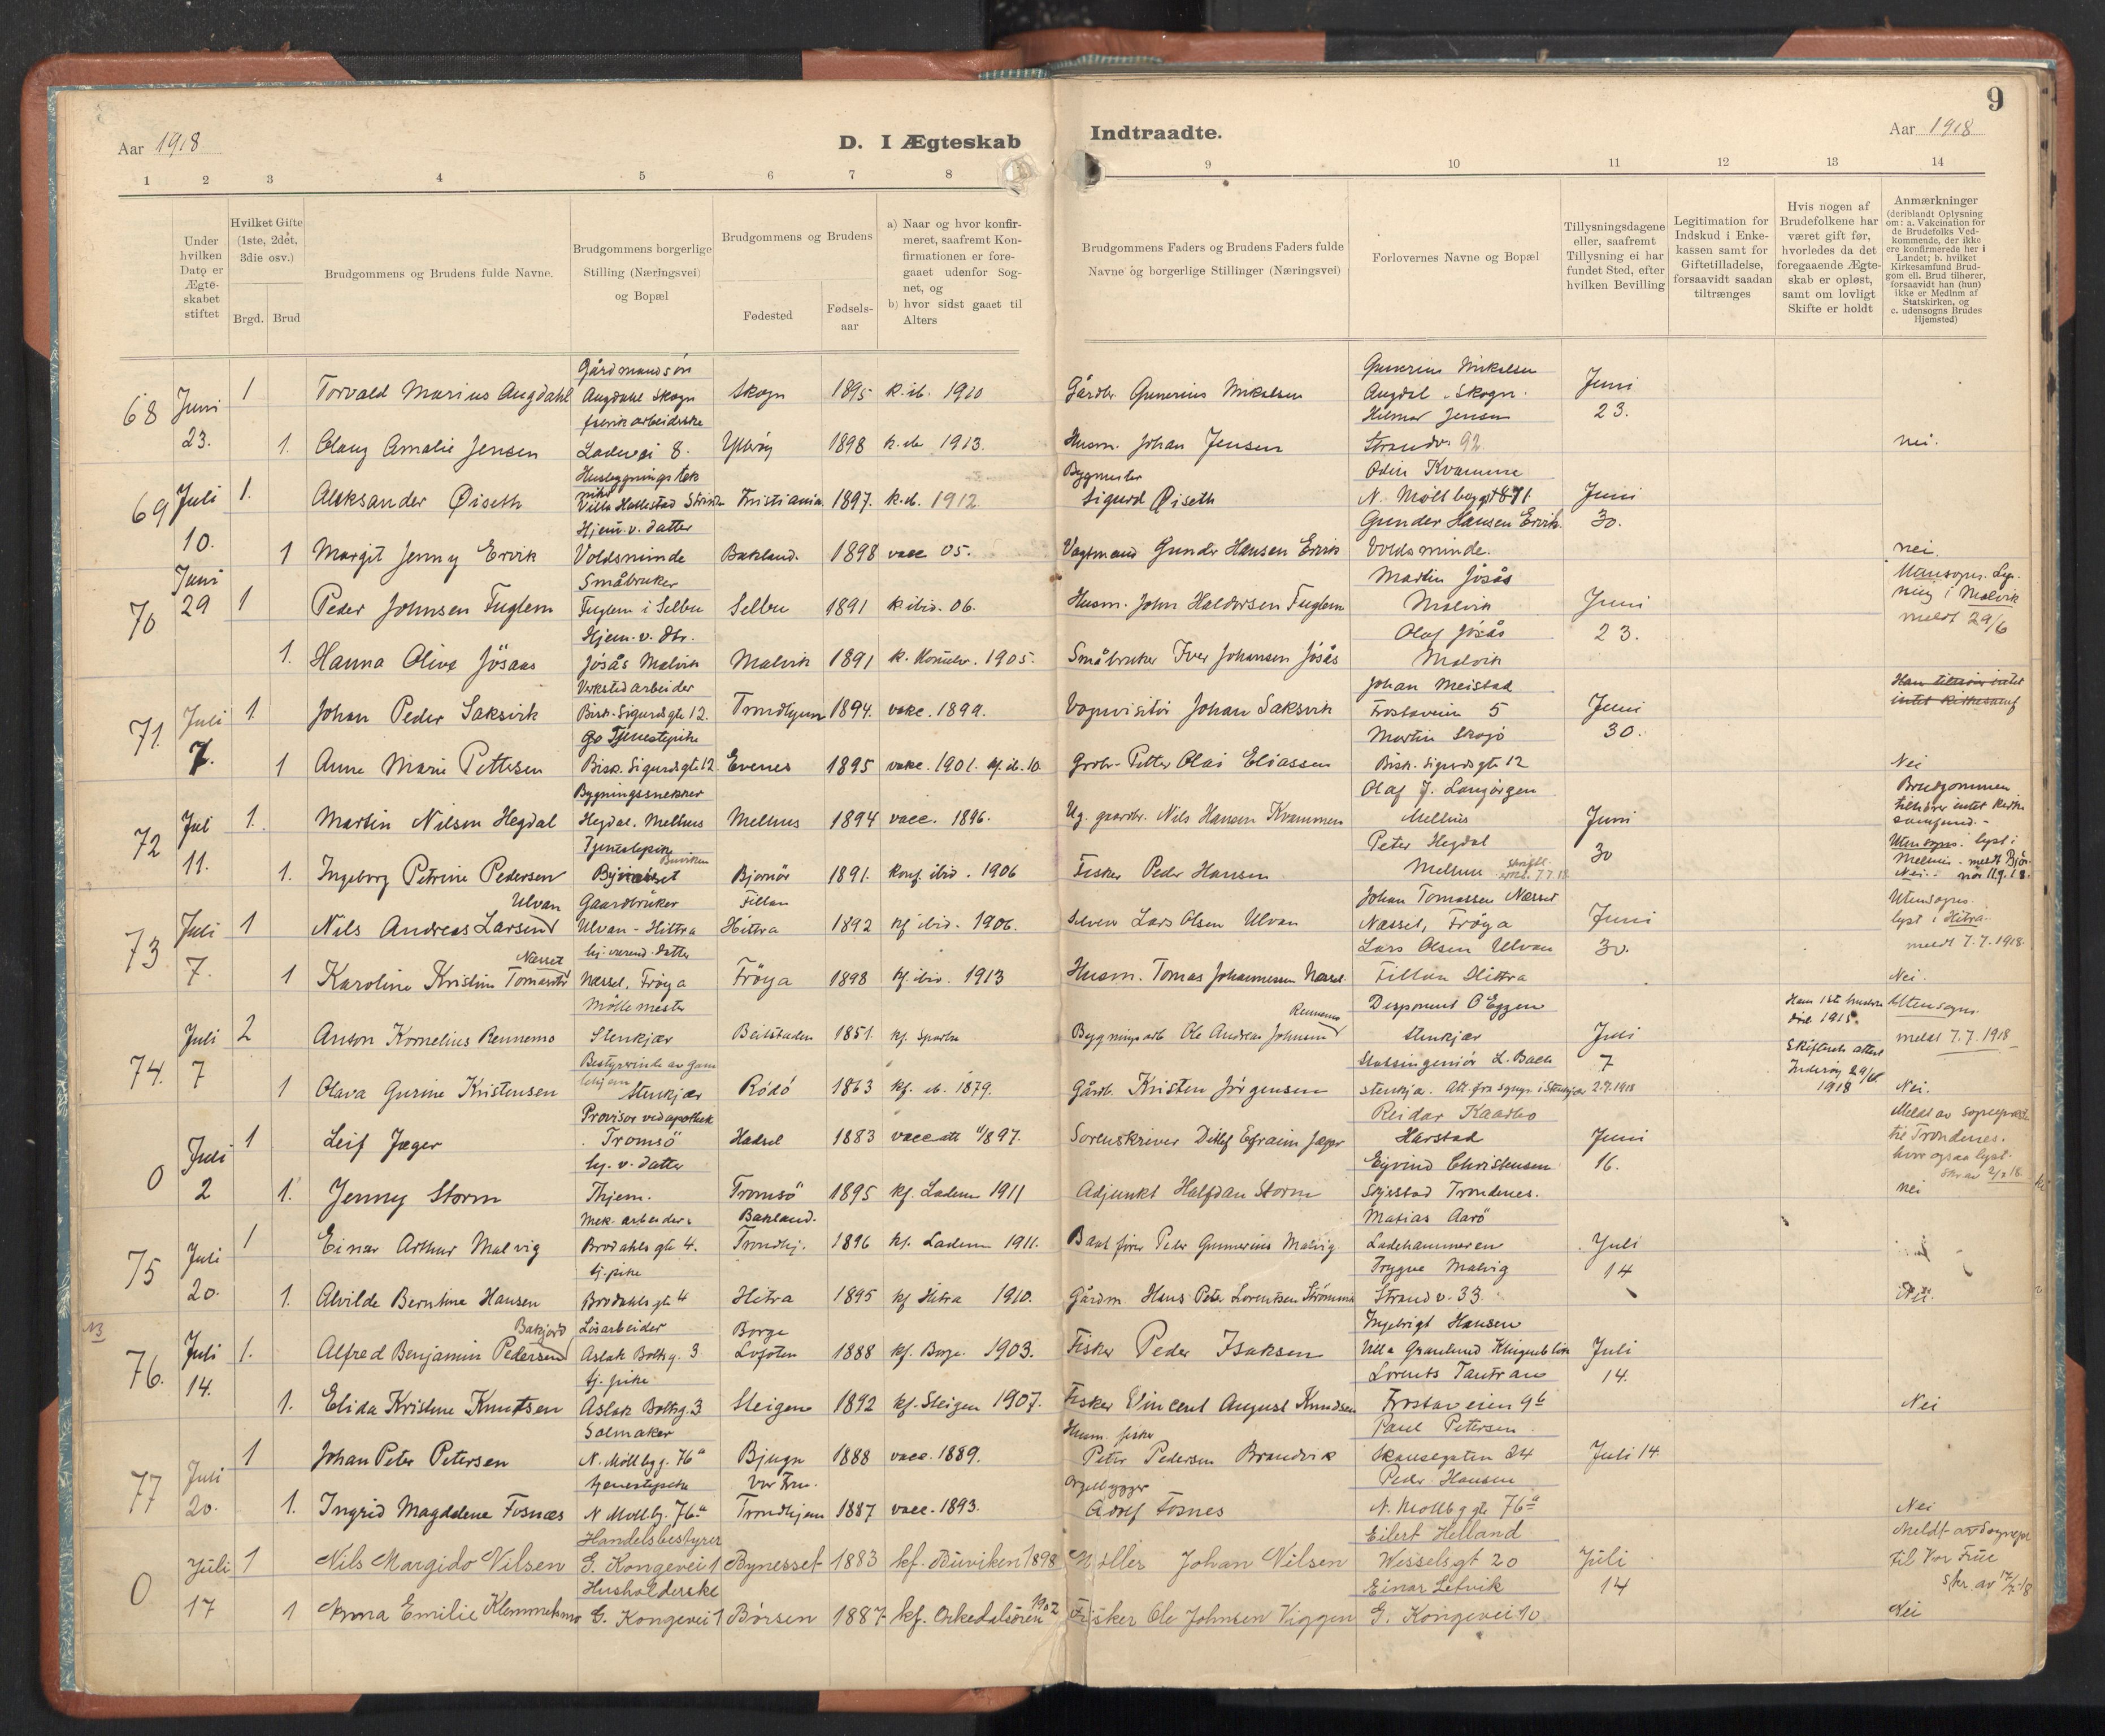 9
Aar 1918
D. I Ægteskab Indtraadte.
Aar 1918
1 2 3 4 5 6 7 8 9 10 11 12 13 14
Under hvilken Dato er Ægteskabet stiftet
Hvilket Gifte (1ste, 2det, 3die osv.)
Brgd. Brud
Brudgommens og Brudens fulde Navne.
Brudgommens borgerlige Stilling (Næringsvei) og Bopæl
Brudgommens og Brudens
Fødested
Fødselsaar
a) Naar og hvor konfirmeret, saafremt Konfirmationen er foregaaet udenfor Sognet, og
b) hvor sidst gaaet til Alters
Brudgommens Faders og Brudens Faders fulde Navne og borgerlige Stillinger (Næringsvei)
Forlovernes Navne og Bopæl
Tillysningsdagene eller, saafremt Tillysning ei har fundet Sted, efter hvilken Bevilling
Legitimation for Indskud i Enkekassen samt for Giftetilladelse, forsaavidt saadan tiltrænges
Hvis nogen af Brudefolkene har været gift før, hvorledes da det foregaaende Ægteskab er opløst, samt om lovligt Skifte er holdt
Anmærkninger (deriblandt Oplysning om: a. Vakcination for de Brudefolks Vedkommende, der ikke ere konfirmerede her i Landet; b. hvilket Kirkesamfund Brudgom ell. Brud tilhører, forsaavidt han (hun) ikke er Medlem af Statskirken, og c. udensogns Brudes Hjemsted)
Gårdmandsøn Gunerius Mikalsen
68 Juni 1 Torvald Marius Augdahl Augdahl Skogn Skogn 1895 k. ib. 1910 Gårdbr. Gunerius Mikalsen Augdal. Skogn. Juni
fabrikarbeiderske Hilmar Jensen 23.
23. 1. Olaug Amalie Jensen Ladevei 8. Ytterøy 1898 k. ib 1913. Husm. Johan Jensen Strandv. 92 nei.
Husbygnings tek Bygmester Odin Kvamme
69 Juli 1. Aleksander Øiseth Villa Hallestad Strinda Kristiania 1897. k. ib. 1912 Sigurd Øiseth N. Møllbggt 871 Juni
Hjem. v. datter Gunder Hansen Ervik 30.
10. 1 Margit Jenny Ervik Voldsminde Bakland. 1898 vacc 05. Vagtmand Gunder Hansen Ervik Voldsminde. nei.
Juni Småbruker Martin Jøsås Utensogns. Lys-
70 29 1 Peder Johnsen Fuglem Fuglem i Selbu Selbu 1891 k. ibid. 06. Husm. John Haldorsen Fuglem Malvik Juni ning i Malvik
Hjem. v. dtr. Olaf Jøsås 23. meldt 29/6
1. Hanna Oliva Jøsaas Jøsås Malvik Malvik 1891 k. 1905. Småbruker Iver Johansen Jøsås Malvik
Verkstedarbeider Johan Meistad Han tilhører intet
71. Juli 1 Johan Peder Saksvik Bisk. Sigurdsgte 12. Trondhjem 1894. vakc. 1899. Vognvisitør Johan Saksvik Frostaveien 5 Juni intet kirkesamf
Tjenestepike Martin 30.
7. 1 Anne Marie Pettesen Bisk. Sigurdsgte 12 Evenes 1895 vakc. 1901. kf. ib. 10 Grdbr. Petter Olai Eliassen Bisk. Sigurdsgte 12 Nei
Bygningssnekker Olaf J. Langørgen Brudgommen
72 Juli 1. Martin Nilsen Hegdal Hegdal. Melhus Melhus 1894 vacc. 1896. Ug. gaardbr. Nils Hansen Kvammen Melhus Juni tilhører intet kirke
samfund.
Tjenestepike Buviken Peter Hegdal 30 Utensogns. lyst i
11. 1. Ingeborg Petrine Pedersen Bynesset Bjørnør 1891. konf. ibid. 1906 Fisker Peder Hansen Melhus Melhus - meldt Bjør-
Nei.
Ulvan Gaardbruker Fillan Johan Tomassen Næsset Utensogns.
73 Juli 1 Nils Andreas Larsen Ulvan - Hittra Hittra 1892 kf ibid. 1906. Selveier Lars Olsen Ulvan Næsset, Frøya Juni lyst i Hitra.
Næsset hj. værend. datter Lars Olsen Ulvan 30. meldt 7.7.1918.
7. 1 Karoline Kristine Tomasdtr Næsset, Frøya Frøya 1898 kf. ibid. 1913 Husm. Tomas Johannessen Næsset. Fillan Hittra Nei.
Møllemester Rennemo Disponent O Eggen Hans 1ste hustru Utensogns.
74. Juli 2 Anton Kornelius Rennemo Stenkjær Beitstaden 1851. kf. Sparbu Bygningsarb. Ole Andreas Johnsen Stenkjær Juli død 1915. meldt 7.7.1918
Bestyrerinde av gam lehjem Statsingeniør L. Bach 7 Skifteretts attest
7 1 Olava Gurine Kristensen Stenkjær Rødø 1863 kf. ib. 1879. Gårdb. Kristen Jørgensen Stenkjær. Att. fra sogup. i Stenkjær 2.7.1918 Inderøy 29/6 1918 Nei.
Provisor ved apothek Reidar Kaarbo Meldt av sogneprest
0 Juli 1 Leif Jæger Tromsø Hadsel 1883 vacc att 11/8 97. Sorenskriver Ditlef Efraim Jæger Harstad Juni til Trondenes.
hj. v. datter Eyvind Christensen 16. hvor ogsaa lyst.
2 1. Jenny Storm Thjem. Tromsø 1895 kf. Ladem 1911 Adjunkt Halfdan Storm Trondenes. nei
Mek. arbeider Bakland. Matias Aarø
75 Juli 1 Einar Arthur Malvig Brodahls gte 4. Trondhj. 1896 kf. Ladem 1911. Baat fører Peter Gunnerius Malvig Ladehammeren Juli
tj. pike Trygve Malvig 14
20. 1. Alvilde Berntine Hansen Brodahls gte 4 Hitra 1895 kf Hitra 1910. Gårdm. Hans Peter Lorentsen Strømmen Strandv. 33 Nei.
Bakjord Løsarbeider Borge Ingebrigt Hansen
76. Juli 1. Alfred Benjamin Pedersen Aslak Boltsg. 3 Lofoten 1888 kf. Borge. 1903. Fisker Peder Isaksen Villa Granlund Juli
tj. pike Lorents Tautran 14.
14. 1. Elida Kristine Knutsen Aslak Boltsg. 3 Steigen 1892 kf. Steigen 1907. Fisker Vincent August Knudsen Frostaveien 9b Nei
Salmaker Husm. fisker Paul Petersen
77 Juli 1 Johan Peter Petersen N. Møllbg. 76a Bjugn 1888 vacc. 1889. Peter Pedersen Brandvik Skansegaten 24 Juli 14.
tjenestepike Vor Frue. Orgelbygger Peder Hansen
20. 1. Ingrid Magdalene Fosnæs N Møllbg. 76a Trondhjem 1887 vacc. 1893. Adolf Fosnes N. Mollbg gte 76a Nei
Handelsbestyrer Eilert Helland Meldt av Sognepr
0 Juli 1 Nils Margido Nilsen G. Kongevei 1 Bynesset 1883 kf. Buviken 1898 Møller Johan Nilsen Wesselsgt 20 Juli til Vor Frue
Husholderske Einar Letvik 14 skr. av 17/7-18
17 1 Anna Emilie Klemmetsmo G. Kongevei 1 Børsen 1887 kf. Orkedalsøren 1902 Fisker Ole Johnsen Viggen G. Kongevei 10 Nei